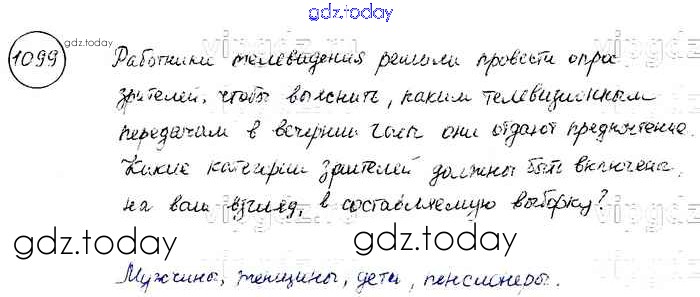 gdz.today
1099
gdz.today
Работники телевидения решили провести опрос
зрителей, чтобы выяснить, каким телевизионным
передачам в вечерние часы они отдают предпочтение.
Какие категории зрителей должны быть включены,
на ваш взгляд, в составляемую выборку?
gdz.today
gdz.today
Мужчины, женщины, дети, пенсионеры.